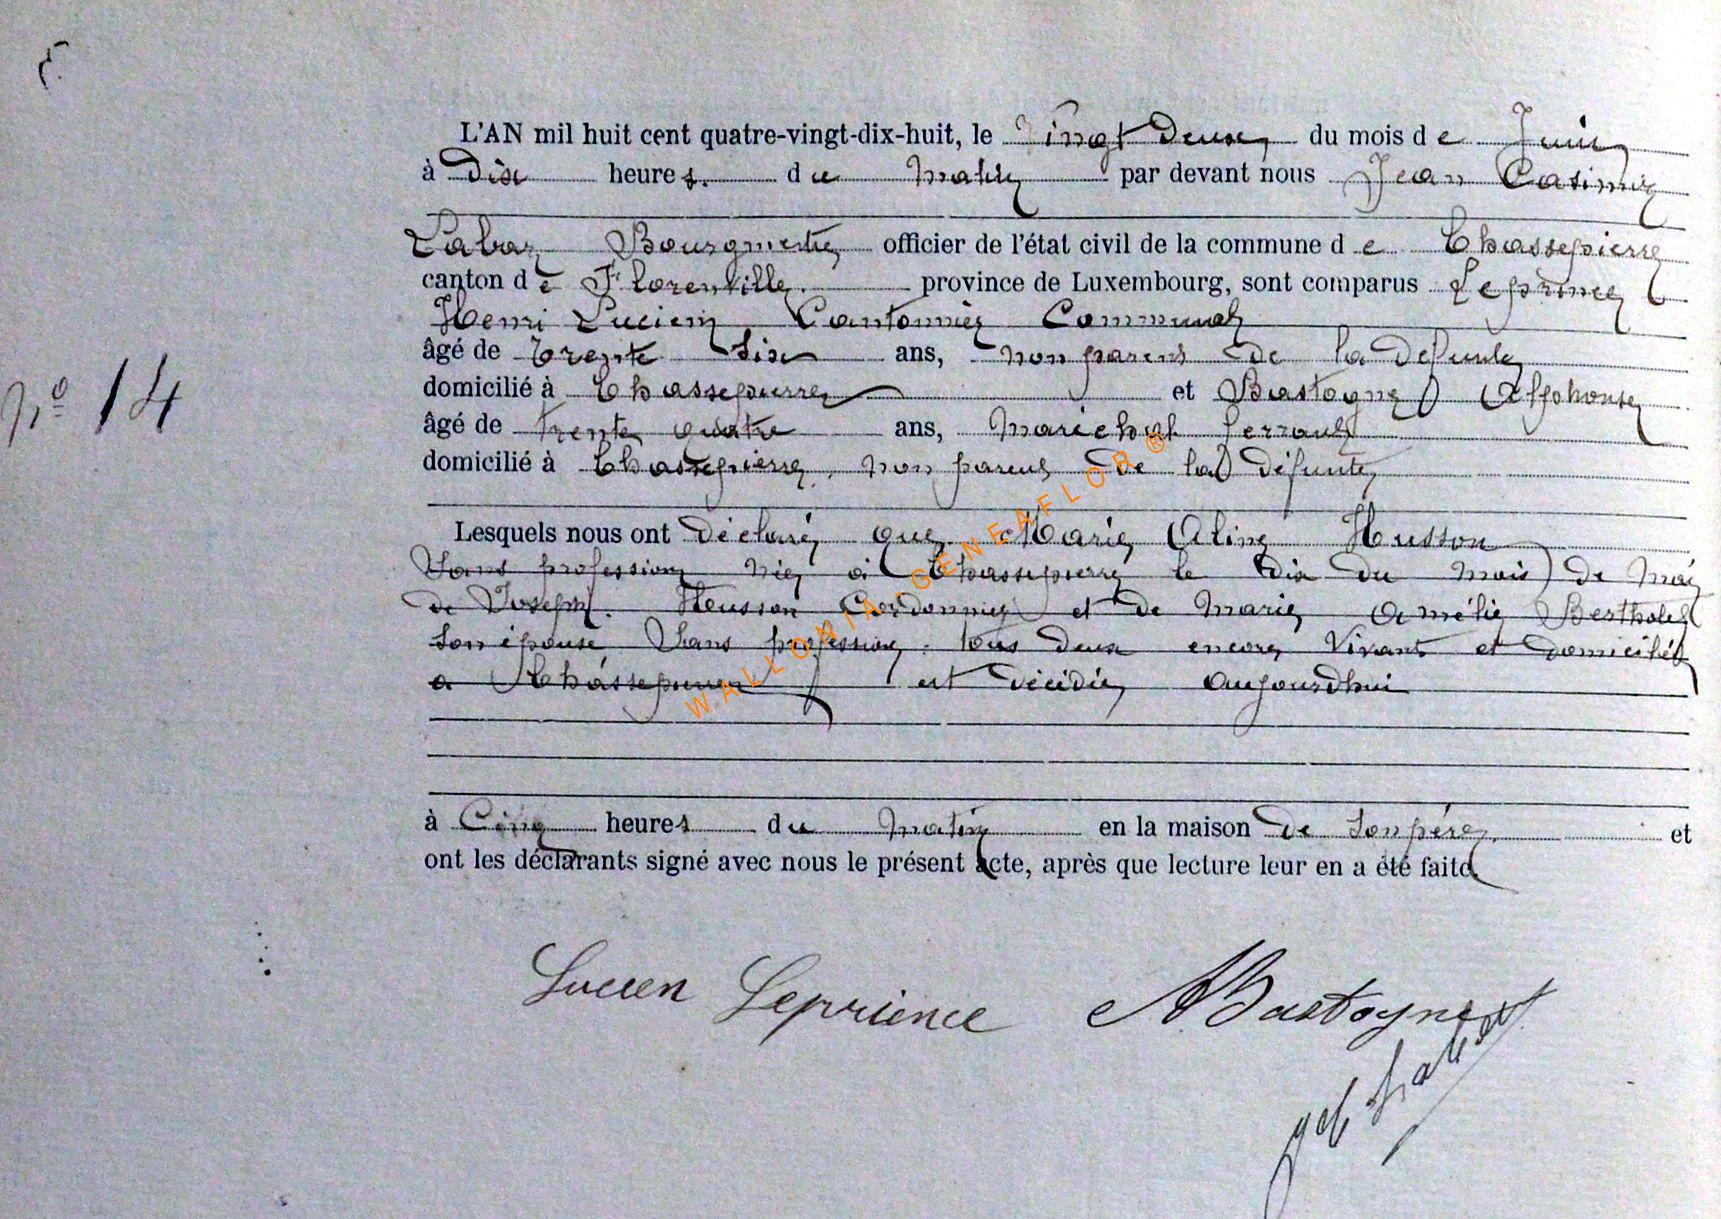 L'AN mil huit cent quatre-vingt-dix-huit, le Vingt deux du mois de Juin
à Dix heures. du Matin par devant nous Jean Casimir
Bourgmestre officier de l'état civil de la commune de Chassepierre
canton de Florenville. province de Luxembourg, sont comparus Leprince
Henri Lucien Cantonnier Communal
âgé de trente six ans, non parent de la défunte
nº 14
domicilié à Chassepierre et Bastogne Alphonse
âgé de trente quatre ans, Maréchal ferrant
domicilié à Chassepierre, non parent de la défunte
Lesquels nous ont déclaré que Marie Aline Husson
Sans profession née à Chassepierre le dix du mois de Mai
de Joseph. Husson Cordonnier et de Marie Amélie Bertholet
son épouse Sans profession, tous deux encore Vivants et domiciliés
a Chassepierre est décédée aujourdhui
à Cinq heures du Matin en la maison de son père. et
ont les déclarants signé avec nous le présent acte, après que lecture leur en a été faite.
Lucien Leprince ABastogne
WALLONIA.GENEAFLOR®